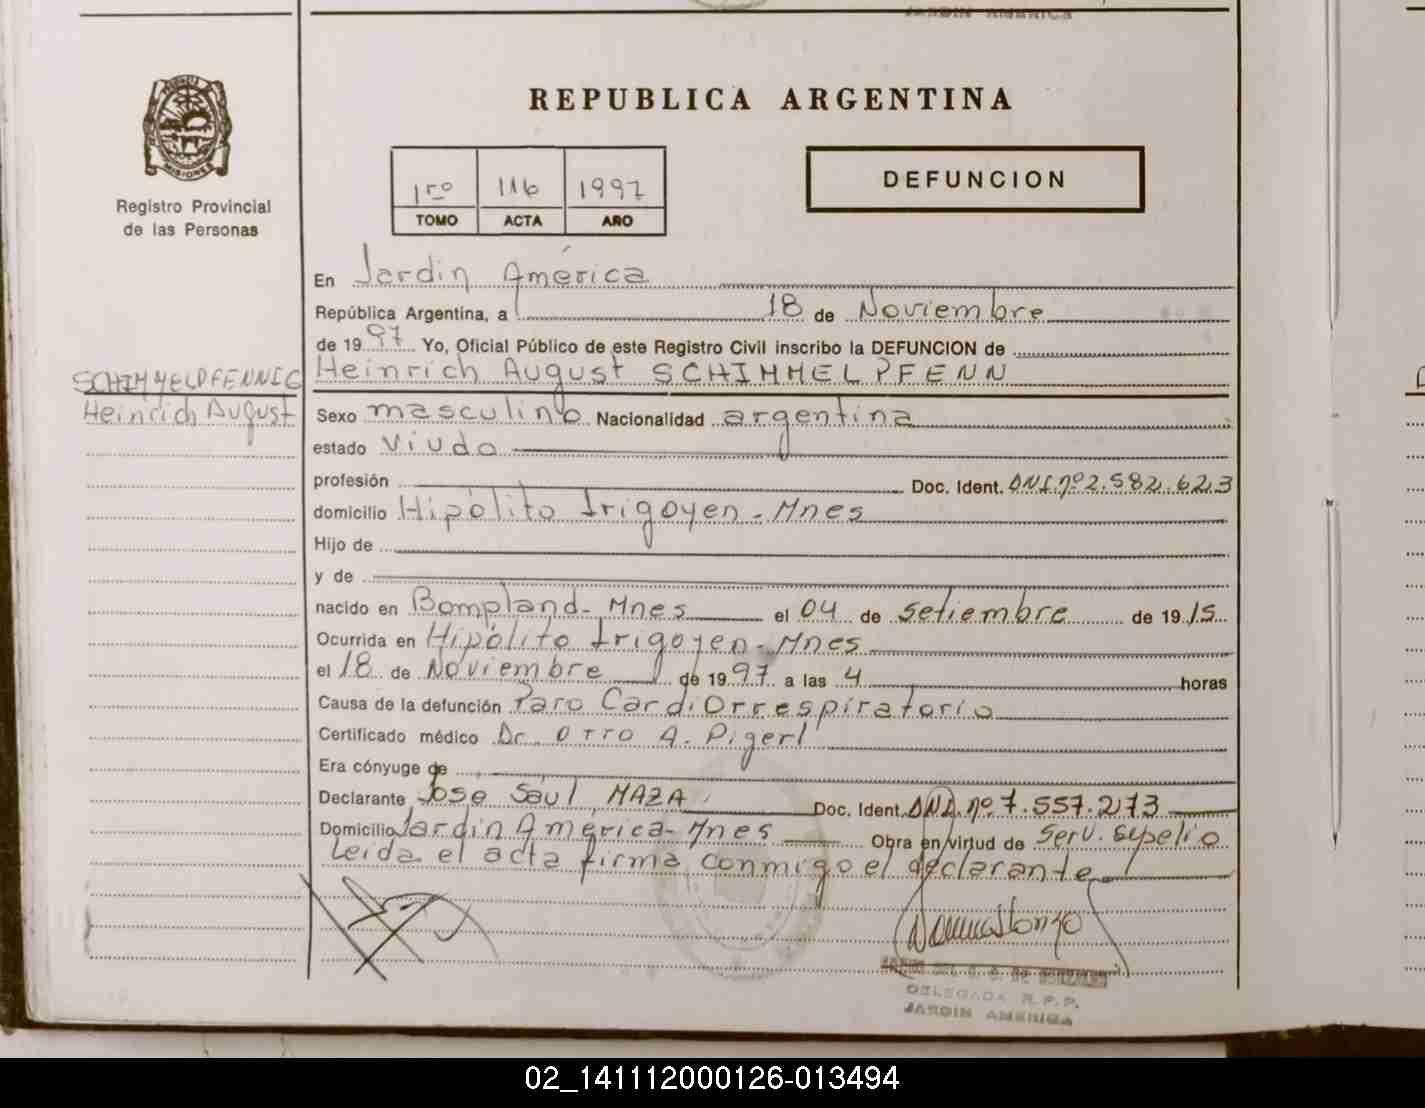 JARDIN AMERICA
MISIONES
Registro Provincial
de las Personas
REPUBLICA ARGENTINA
1ro 116 1997
TOMO ACTA AÑO
DEFUNCION
En Jardin América
República Argentina, a 18 de Noviembre
de 1997 Yo, Oficial Público de este Registro Civil inscribo la DEFUNCION de
Heinrich August SCHIMMELPFENN
SCHIMMELPFENNIG
Heinrich August
Sexo masculino Nacionalidad argentina
estado viudo
profesión Doc. Ident. DNI.nº2.582.623
domicilio Hipólito Irigoyen - Mnes
Hijo de
y de
nacido en Bompland - Mnes el 04 de Setiembre de 1915
Ocurrida en Hipólito Irigoyen - Mnes
el 18 de Noviembre de 1997 a las 4 horas
Causa de la defunción Paro Cardiorrespiratorio
Certificado médico Dr. OTTO A. Pigerl
Era cónyuge de
Declarante Jose Saul MAZA Doc. Ident. DNI.nº 7.557.273
Domicilio Jardin América - Mnes Obra en virtud de Serv. Sepelio
Leida el acta firma conmigo el declarante
DELEGADA R.P.P.
JARDIN AMERICA
02_141112000126-013494